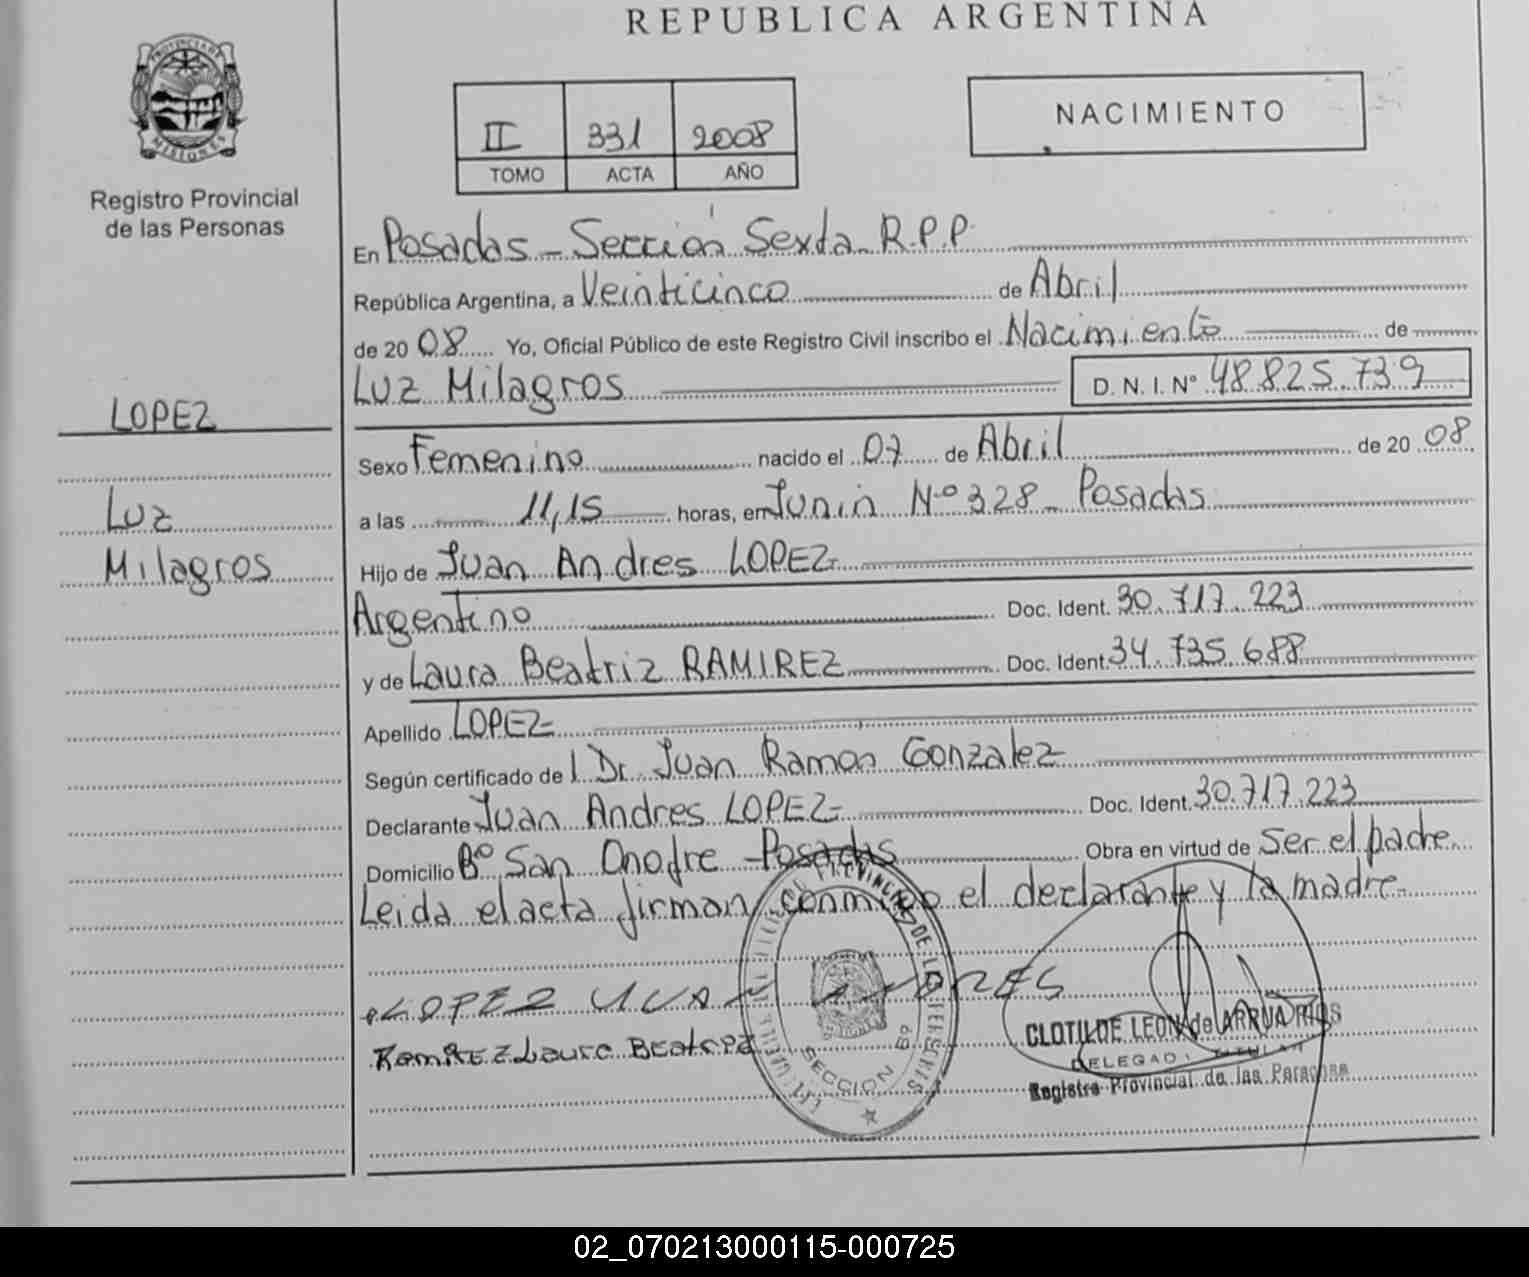 REPUBLICA ARGENTINA
PROVINCIA DE
MISIONES
Registro Provincial
de las Personas
II 331 2008
TOMO ACTA AÑO
NACIMIENTO
En Posadas - Sección Sexta R.P.P.
República Argentina, a Veinticinco de Abril
de 20 08 Yo, Oficial Público de este Registro Civil inscribo el Nacimiento de
Luz Milagros D. N. I. N° 48.825.739
LOPEZ
Luz
Milagros
Sexo Femenino nacido el 07 de Abril de 20 08
a las 11,15 horas, en Junin Nº 328 Posadas
Hijo de Juan Andres LOPEZ
Argentino Doc. Ident. 30.717.223
y de Laura Beatriz RAMIREZ Doc. Ident. 34.735.688
Apellido LOPEZ
Según certificado de l Dr. Juan Ramon Gonzalez
Declarante Juan Andres LOPEZ Doc. Ident. 30.717.223
Domicilio Bº San Onofre - Posadas Obra en virtud de Ser el padre
Leida el acta firman conmigo el declarante y la madre
LOPEZ JUAN ANDRES
Ramirez Laura Beatriz
SECCION 6º
CLOTILDE LEON de ARRUA RIOS
DELEGADA TITULAR
Registro Provincial de las Personas
02_070213000115-000725